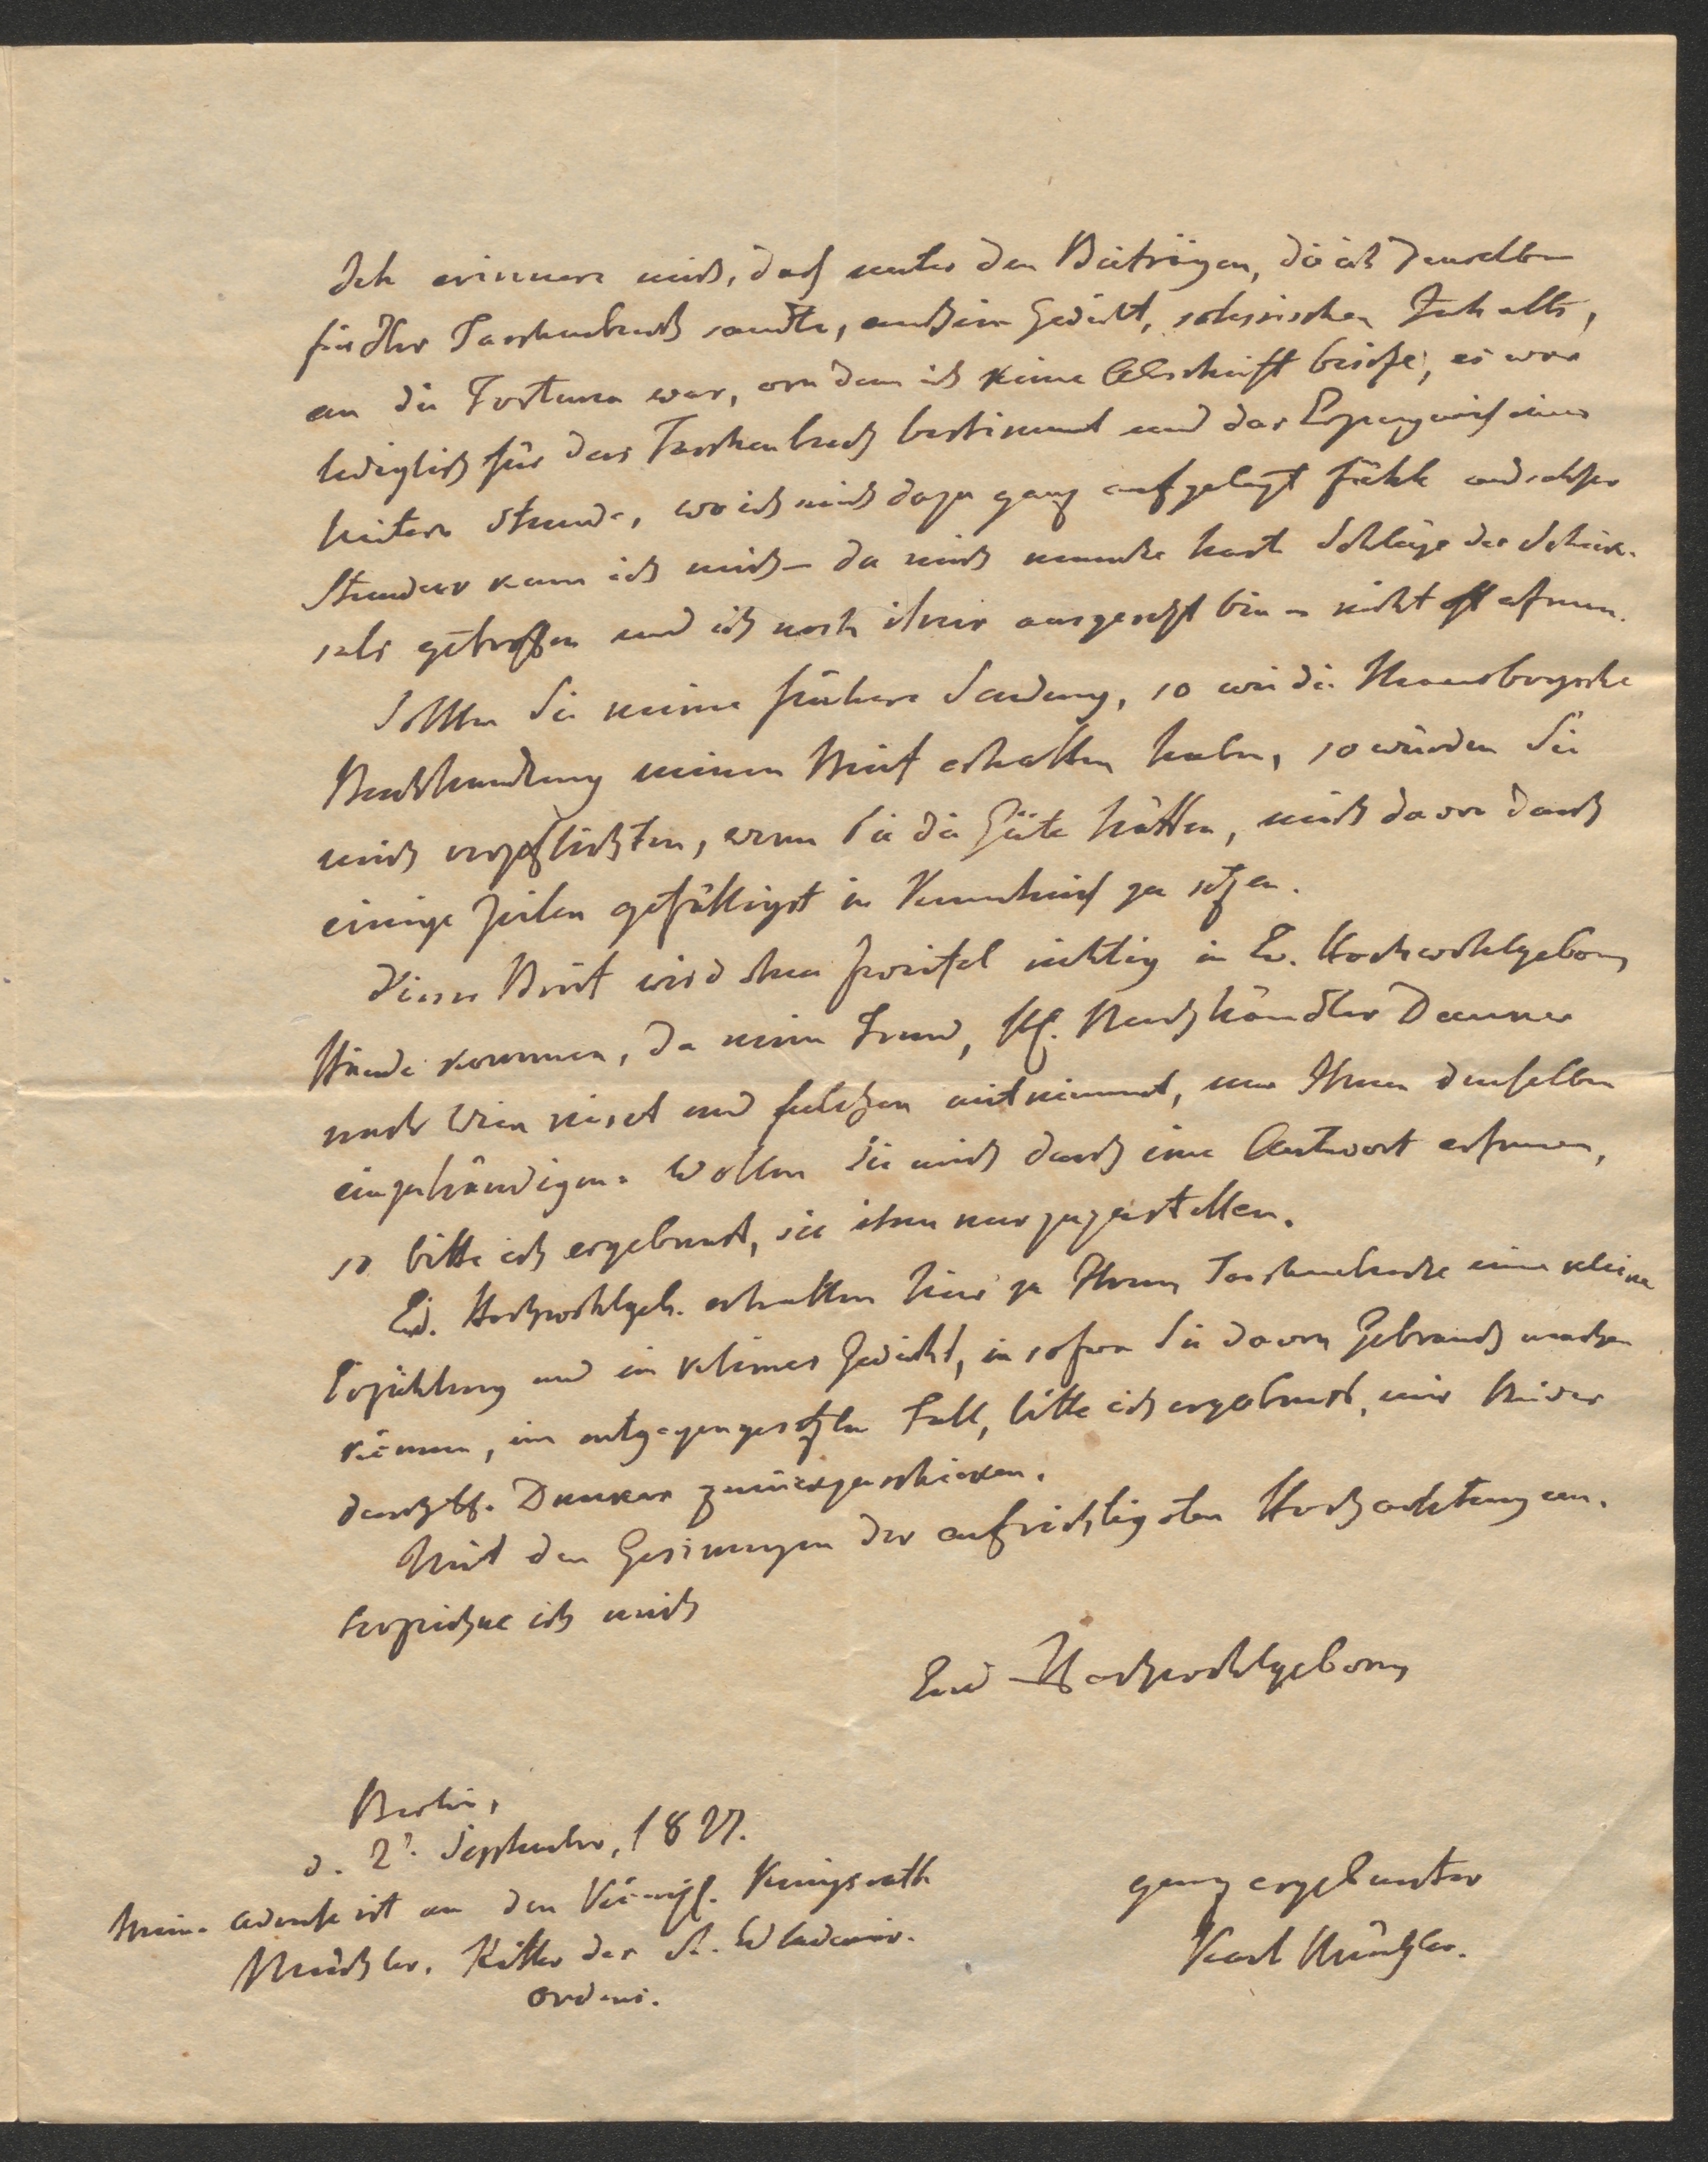 Ich erinnere mich, daß unter den Beiträgen, die ich denselben
für Ihr Taschenbuch sandte, auch ein Gedicht, scherzischen Inhalts,
an die Fortuna war, von dem ich keine Abschrift besitze, es war
lediglich für das Taschenbuch bestimmt und das Erzeugniß einer
heitern Stunde, wo ich mich dazu ganz aufgelegt fühlte und solcher
Stunden kann ich mich – da mich manche harte Schläge des Schick-
sals getroffen und ich noch ihnen ausgesetzt bin – nicht oft erfreun.
Sollten Sie meine frühere Sendung, so wie die
Buchhandlung meinen Brief erhalten haben, so würden Sie
mich verpflichten, wenn Sie die Güte hätten, mich davon durch
einige Zeilen gefälligst in Kenntniß zu setzen.
Dieser Brief wird ohne Zweifel richtig in Ew. Hochwohlgeborn
Hände kommen, da mein Freund, H. Buchhändler Duncker
nach Wien reiset und solchen mitnimmt, um Ihnen denselben
einzuhändigen. Wollen Sie mich durch eine Antwort erfreuen,
so bitte ich ergebenst, sie ihm nur zuzustellen.
Ew. Hochwohlgeb. erhalten hier zu Ihrem Taschenbuche eine kleine
Erzählung und ein kleines Gedicht, in sofern Sie davon Gebrauch machen
können, im entgegengesetzten Fall, bitte ich ergebenst, mir beides
durch H. Duncker zurückzuschicken.
Mit den Gesinnungen der aufrichtigsten Hochachtung un-
terzeichne ich mich
Euer Hochwohlgeborn
Berlin,
d. 2t. September, 1827.
Meine Adresse ist an den Königl. Kriegsrath
Müchler, Ritter des St. Wladimir-
ordens.
ganz ergebenster
Karl Müchler.